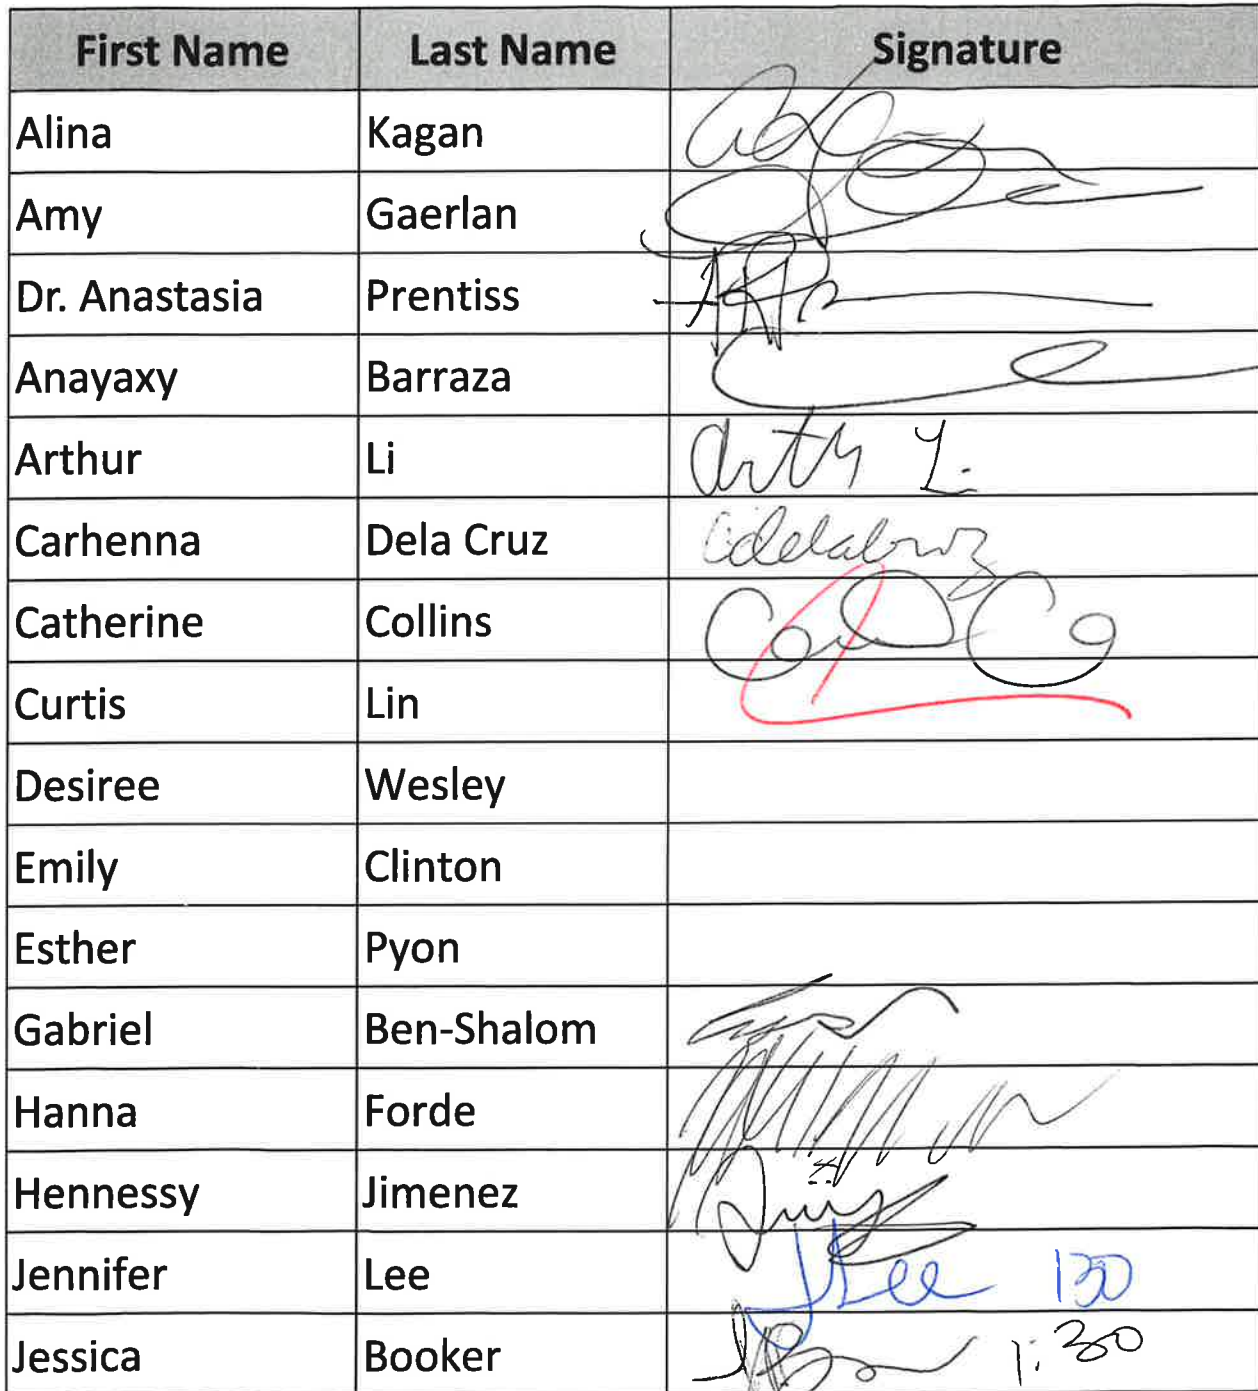 First Name Last Name Signature
Alina Kagan
Amy Gaerlan
Dr. Anastasia Prentiss
Anayaxy Barraza
Arthur Li
Carhenna Dela Cruz
Catherine Collins
Curtis Lin
Desiree Wesley
Emily Clinton
Esther Pyon
Gabriel Ben-Shalom
Hanna Forde
Hennessy Jimenez
Jennifer Lee JLee 130
Jessica Booker 1:30